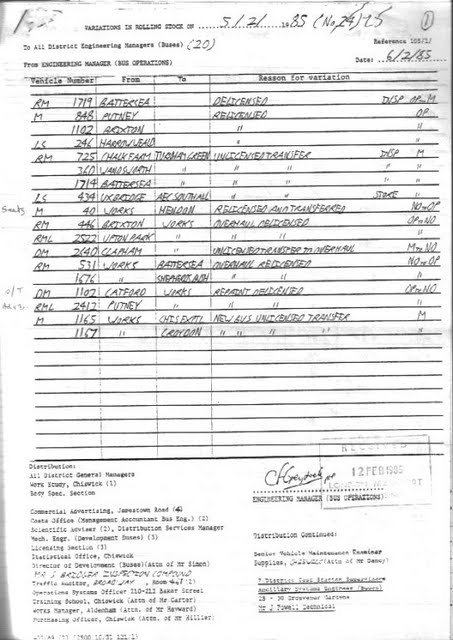 VARIATIONS IN ROLLING STOCK ON 5/2/ 1985 (No. 24) 25
①
To All District Engineering Managers (Buses) (20)
Reference 109/1/
From ENGINEERING MANAGER (BUS OPERATIONS)
Date: 6/2/85
Vehicle Number From To Reason for variation
RM 1719 BATTERSEA DELICENSED DISP OP to M
M 848 PUTNEY RELICENSED OP
1102 BRIXTON " "
LS 246 HARROW WEALD " "
RM 725 CHALK FARM TURNHAM GREEN UNLICENSED TRANSFER DISP M
360 WANDSWORTH " " " " "
1714 BATTERSEA " " " " "
LS 434 UXBRIDGE AEC SOUTHALL " " STORE "
Seats M 40 WORKS HENDON RELICENSED AND TRANSFERRED NO to OP
RM 446 BRIXTON WORKS OVERHAUL DELICENSED OP to NO
RML 2522 UPTON PARK " " " "
DM 2640 CLAPHAM " UNLICENSED TRANSFER TO OVERHAUL M to NO
RM 531 WORKS BATTERSEA OVERHAUL RELICENSED NO to OP
1676 " SHEPHERDS BUSH " " "
O/T DM 1102 CATFORD WORKS REPAINT DELICENSED OP to NO
RML 2412 PUTNEY " " " "
M 1165 WORKS CHISWICK NEW BUS UNLICENSED TRANSFER M
1167 " CROYDON " " " " "
Distribution:
All District General Managers
Work Study, Chiswick (1)
Body Spec. Section
RECEIVED
12 FEB 1985
ENGINEERING MANAGER (BUS OPERATIONS)
Commercial Advertising, Jamestown Road
Costs Office (Management Accountant Bus Eng.) (2)
Scientific Adviser (2), Distribution Services Manager
Mech. Engr. (Development Buses) (3)
Licensing Section (3)
Statistical Office, Chiswick
Director of Development (Buses)(Attn of Mr Simon)
INSPECTION COMPOUND
Traffic Auditor, BROADWAY
Operations Systems Officer 210-212 Baker Street
Training School, Chiswick (Attn of Mr Carter)
Works Manager, Aldenham (Attn. of Mr Hayward)
Purchasing Officer, Chiswick (Attn. of Mr Hillier)
Distribution Continued:
Senior Vehicle Maintenance Examiner
Supplies, CHISWICK (Attn of Mr Demey)
7 District Test Station Supervisors
Ancillary Systems Engineer (Buses)
28 - 30 Grosvenor Gardens
Mr J Powell Technical